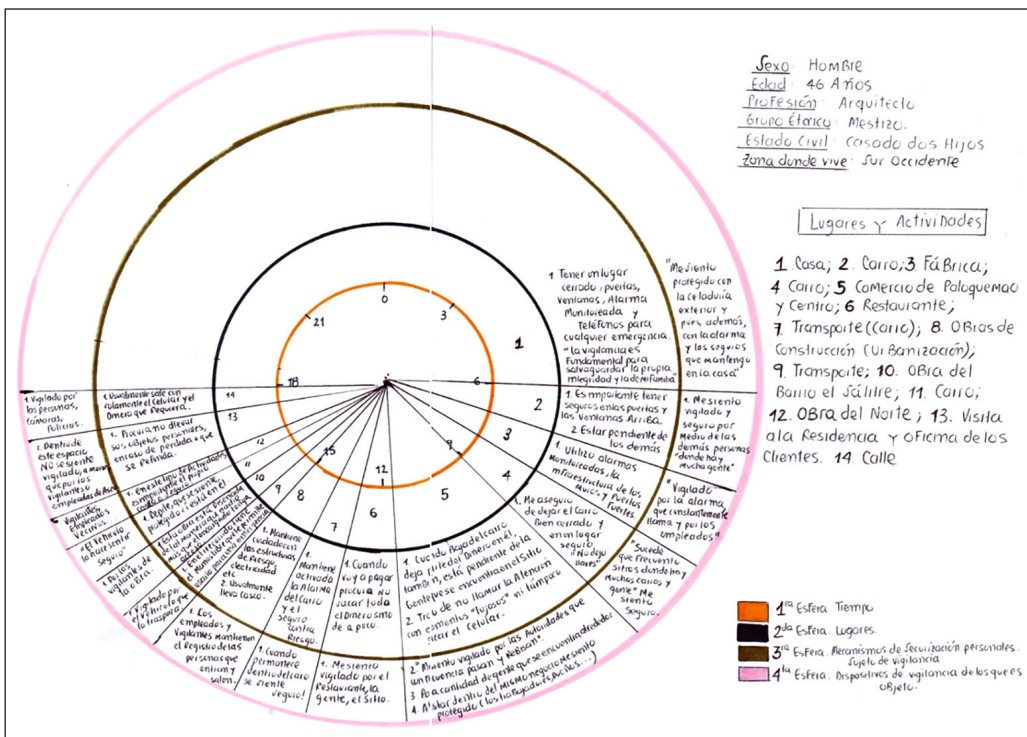 Sexo: HOMBRE
Edad: 46 Años
Profesión: Arquitecto
Grupo Étnico: Mestizo.
Estado Civil: Casado dos Hijos
Zona donde vive: Sur Occidente
Lugares y Actividades
1. Casa; 2. Carro; 3. Fábrica;
4 Carro; 5 Comercio de Paloquemao
y Centro; 6 Restaurante;
7. Transporte (Carro); 8. Obras de
Construcción (Urbanización);
9. Transporte; 10. Obra del
Barrio el Sálitre; 11. Carro;
12. Obra del Norte; 13. Visita
a la Residencia y oficina de los
Clientes. 14. Calle
1ra Esfera. Tiempo
2da Esfera. Lugares.
3ra Esfera. Mecanismos de Securización personales.
Sujeto de vigilancia
4ta Esfera. Dispositivos de vigilancia de los que es
Objeto.
0
3
6
9
12
15
18
21
1
2
3
4
5
6
7
8
9
10
11
12
13
14
1 Tener un lugar
cerrado, puertas,
Ventanas, Alarma
Monitoreada y
Teléfonos para
cualquier emergencia.
"la vigilancia es
Fundamental para
salvaguardar la propia
integridad y la de mi familia"
"Me siento
protegido con
la celaduría
exterior y
pues, además,
con la alarma
y los seguros
que mantengo
en la casa"
1. Es importante tener
seguros en las puertas y
las Ventanas Arriba.
2 Estar pendiente de
los demás
1. Me siento
vigilado y
seguro por
medio de las
demás personas
"donde hay
mucha gente"
1. Utilizo alarmas
Monitoreadas, la
infraestructura de los
Muros y Puertas
Fuertes
"Vigilado
por la alarma
que constantemente
llama y por los
empleados"
1. Me aseguro
de dejar el Carro
Bien cerrado y
en un lugar
seguro
"Sucede
que frecuento
sitios donde hay
muchos carros y
gente" Me
siento
seguro.
también, está pendiente de la
Gente y se encuentra el Sitio
2. Trato de no llamar la Atención
ni tampoco
sacar el Celular.
por las Autoridades que
3 Por la cantidad de gente que se encuentra alrededor
4. Al star dentro del Mismo negocio me siento
1. Cuando
voy a pagar
procura No
sacar todo
el Dinero sino
de a poco.
1. Me siento
vigilado por el
Restaurante, la
gente, el Sitio.
1.
Mantiene
activada
la Alarma
del Carro
y el
seguro
contra
Riesgo.
1. Cuando
permanece
dentro del carro
se siente
seguro!
1. Mantiene
cuidado con
las estructuras
de Riesgo,
electricidad
etc.
2. Usualmente
lleva casco.
1. Los
empleados y
Vigilantes mantienen
el Registro de las
personas que
entran y
salen.
1 Vigilado por
el vehículo que
1. Por los
vigilantes de
la obra.
"El Vehículo
lo hace sentir
seguro"
Vigilantes
Empleados
Vecinos.
1. Dentro de
este espacio
No se siente
vigilado, a menos
que por los
vigilantes o
1. Procura no llevar
sus objetos personales,
en caso de pérdida o que
1 Vigilado por
las personas,
Cámaras,
Policías.
1. Usualmente sale con
solamente el celular y el